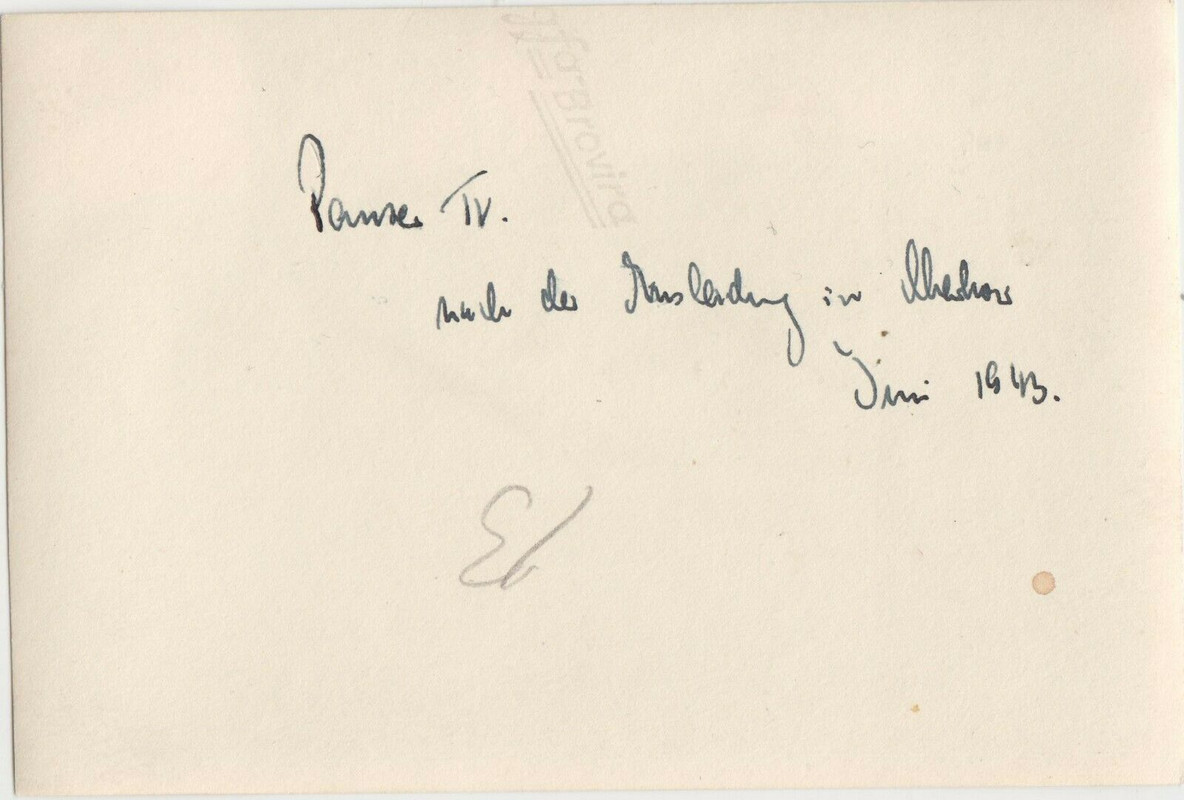 Agfa-Brovira
Panzer IV.
nach der Ausladung in Charkow
Juni 1943.